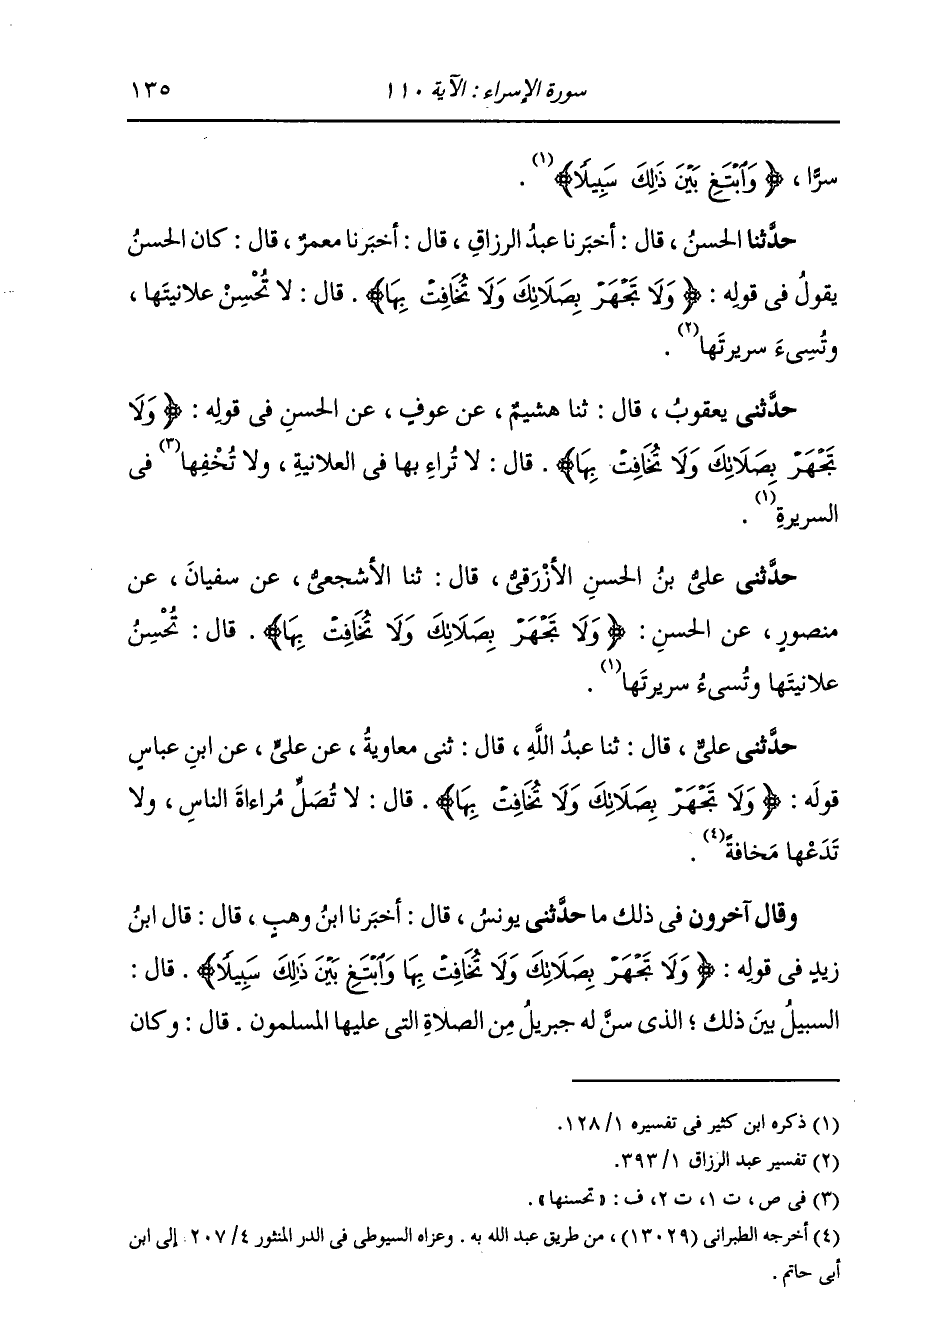 سورة الإسراء : الآية ١١٠ ١٣٥
سرًّا ، ﴿ وَٱبۡتَغِ بَيۡنَ ذَٰلِكَ سَبِيلًا﴾(١) .
حدَّثنا الحسنُ ، قال : أخبَرنا عبدُ الرزاقِ ، قال : أخبَرنا معمرٌ ، قال : كان الحسنُ
يقولُ فى قولِه : ﴿ وَلَا تَجۡهَرۡ بِصَلَاتِكَ وَلَا تُخَافِتۡ بِهَا﴾ . قال : لا تُحْسِنْ علانيتَها ،
وتُسِىءَ سريرتَها(٢) .
حدَّثنى يعقوبُ ، قال : ثنا هشيمٌ ، عن عوفٍ ، عن الحسنِ فى قولِه : ﴿ وَلَا
تَجۡهَرۡ بِصَلَاتِكَ وَلَا تُخَافِتۡ بِهَا﴾ . قال : لا تُراءِ بها فى العلانيةِ ، ولا تُخْفِها(٣) فى
السريرةِ(١) .
حدَّثنى علىُّ بنُ الحسنِ الأزْرَقىُّ ، قال : ثنا الأشجعىُّ ، عن سفيانَ ، عن
منصورٍ ، عن الحسنِ : ﴿ وَلَا تَجۡهَرۡ بِصَلَاتِكَ وَلَا تُخَافِتۡ بِهَا﴾ . قال : تُحْسِنُ
علانيتَها وتُسىءُ سريرتَها(١) .
حدَّثنى علىٌّ ، قال : ثنا عبدُ اللَّهِ ، قال : ثنى معاويةُ ، عن علىٍّ ، عن ابنِ عباسٍ
قولَه : ﴿ وَلَا تَجۡهَرۡ بِصَلَاتِكَ وَلَا تُخَافِتۡ بِهَا﴾ . قال : لا تُصَلِّ مُراءاةَ الناسِ ، ولا
تَدَعْها مَخافةً(٤) .
وقال آخرون فى ذلك ما حدَّثنى يونسُ ، قال : أخبَرنا ابنُ وهبٍ ، قال : قال ابنُ
زيدٍ فى قولِه : ﴿ وَلَا تَجۡهَرۡ بِصَلَاتِكَ وَلَا تُخَافِتۡ بِهَا وَٱبۡتَغِ بَيۡنَ ذَٰلِكَ سَبِيلًا﴾ . قال :
السبيلُ بينَ ذلك ؛ الذى سنَّ له جبريلُ مِن الصلاةِ التى عليها المسلمون . قال : وكان
(١) ذكره ابن كثير فى تفسيره ١/ ١٢٨.
(٢) تفسير عبد الرزاق ١/ ٣٩٣.
(٣) فى ص ، ت ١، ت ٢، ف : « تحسنها» .
(٤) أخرجه الطبرانى (١٣٠٢٩) ، من طريق عبد الله به . وعزاه السيوطى فى الدر المنثور ٤/ ٢٠٧ إلى ابن
أبى حاتم .